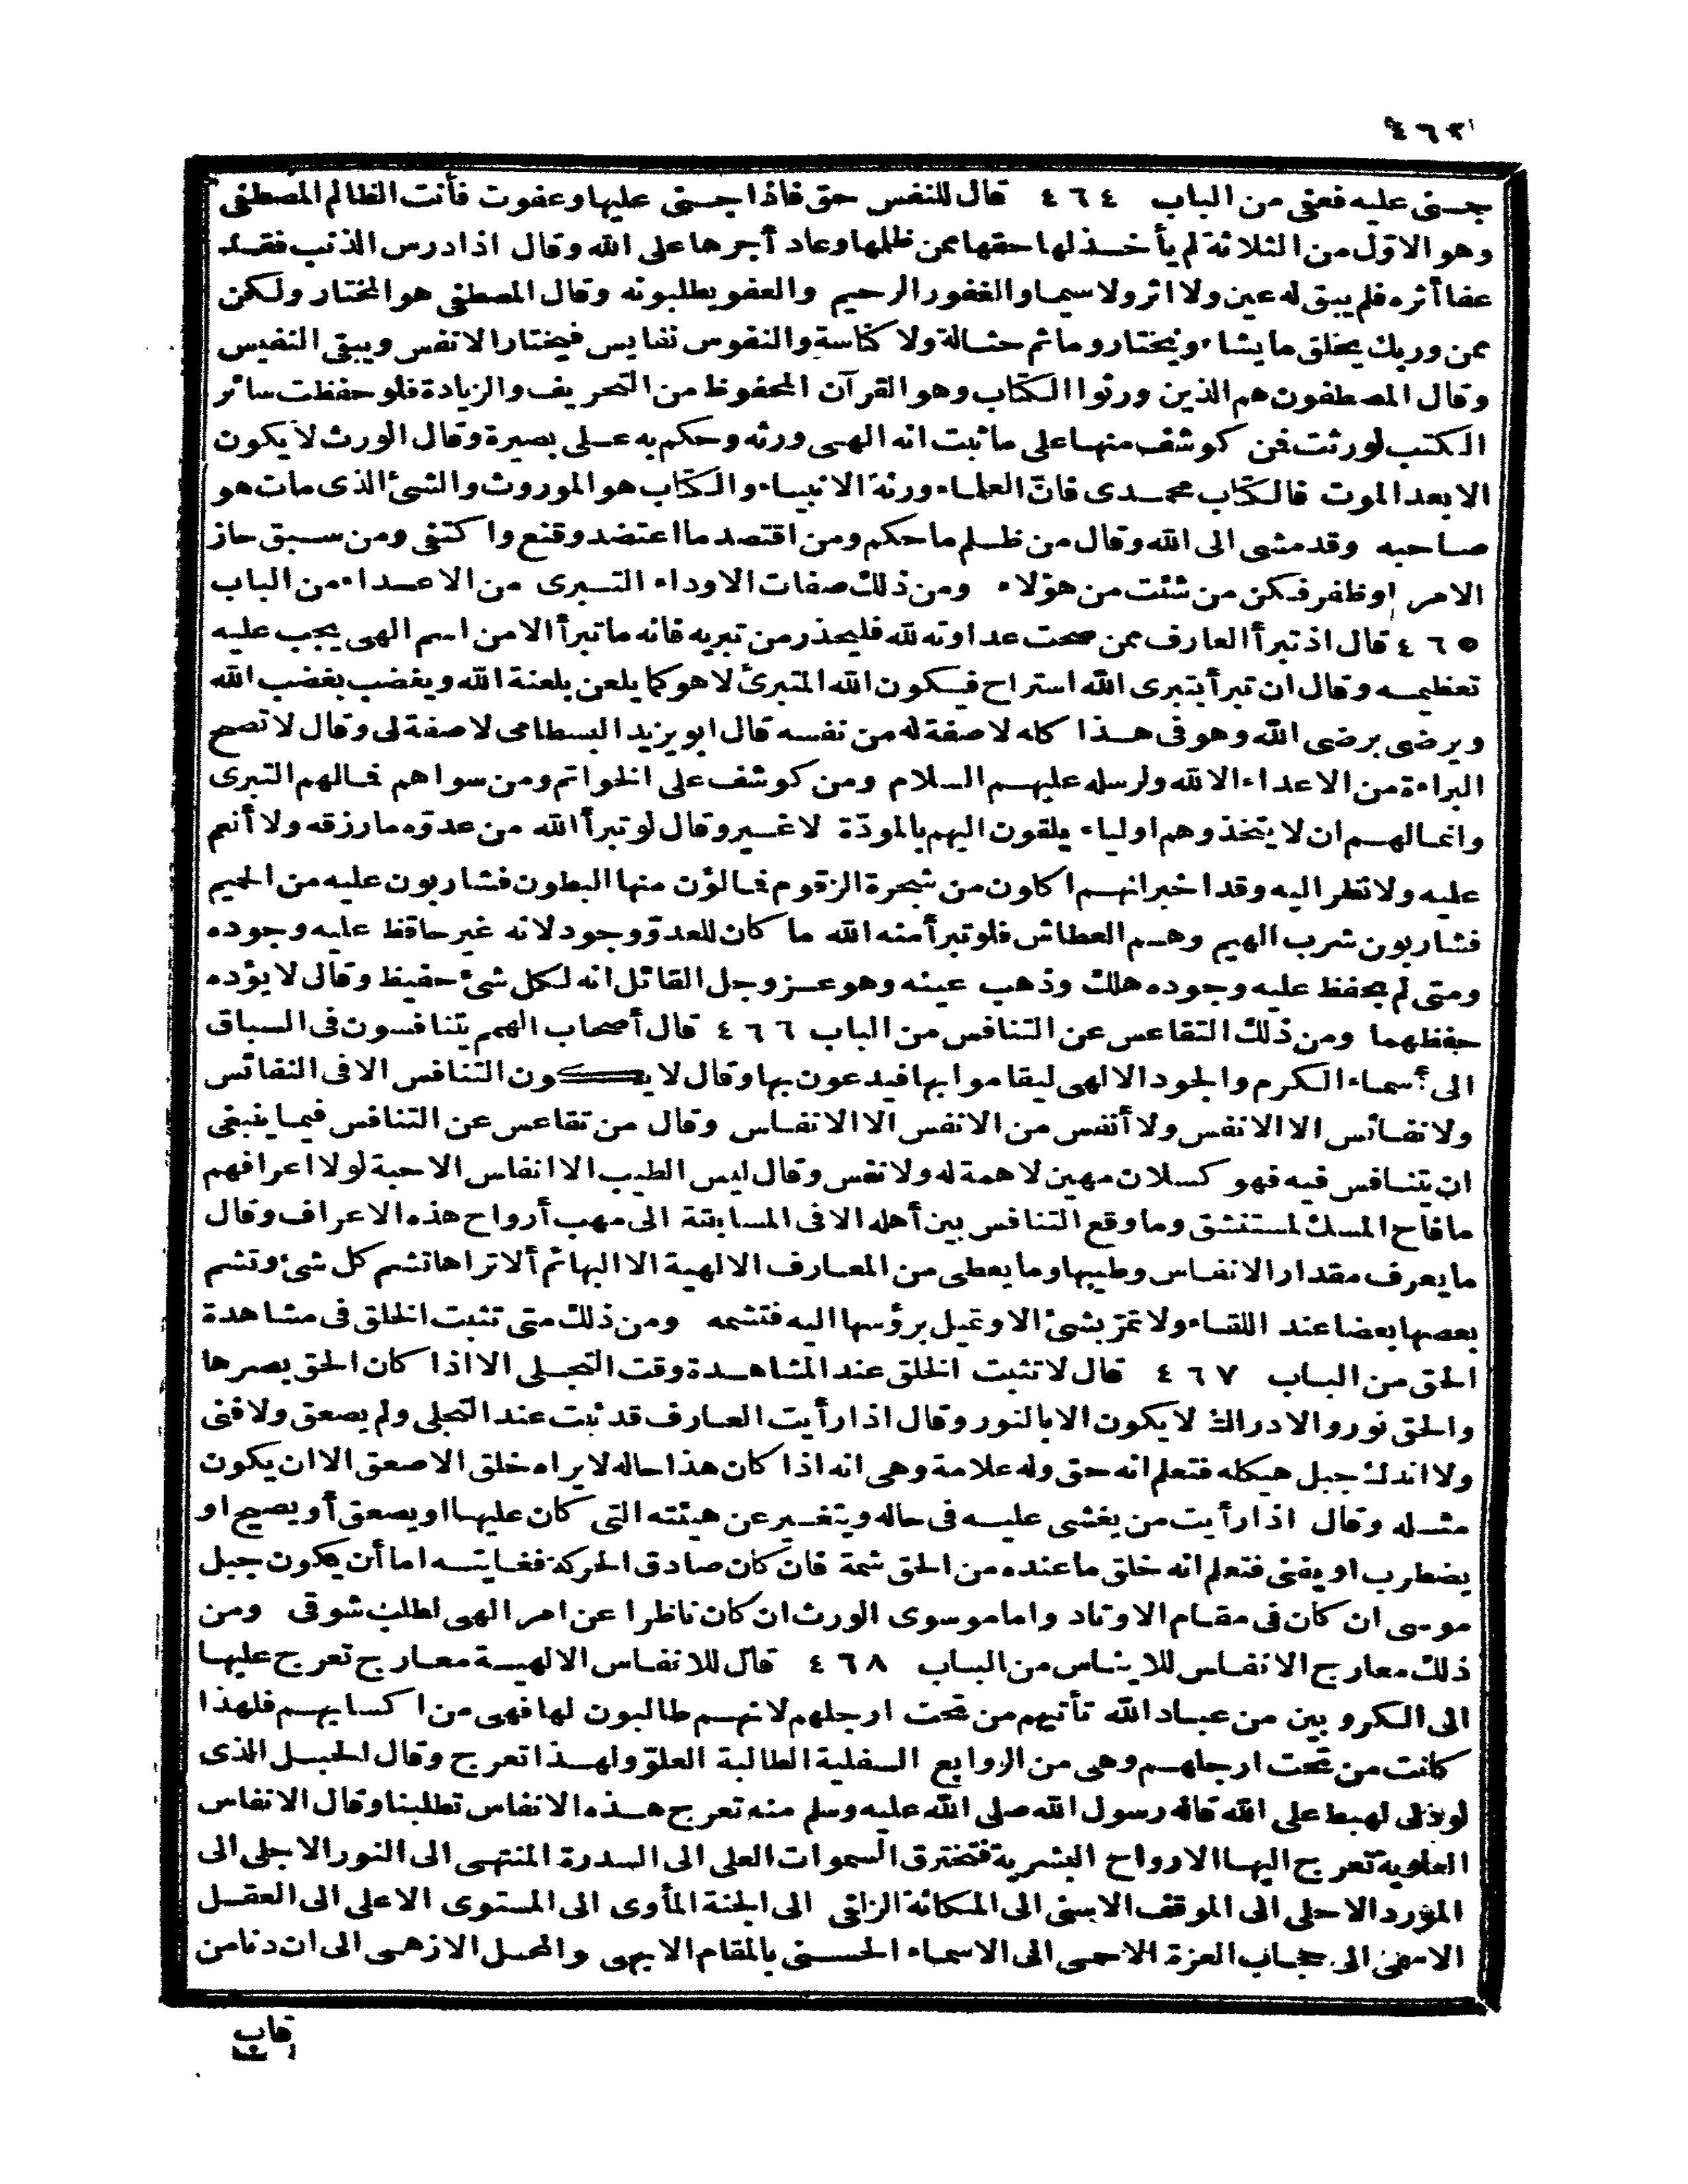 ٤٦٢
جنى عليه فعفى من الباب ٤٦٤ قال للنفس حق فاذا جنى عليها وعفوت فأنت الظالم المصطفى
وهو الاوّل من الثلاثة لم يأخذ لها حقها ممن ظلمها وعاد أجرها على الله وقال اذا درس الذنب فقد
عفا أثره فلم يبق له عين ولا اثر ولا سيما والغفور الرحيم والعفو يطلبونه وقال المصطفى هو المختار ولكن
ممن وربك يخلق ما يشاء ويختار وما ثم حثالة ولا كناسة والنفوس نفايس فيختار الانفس ويبقى النفيس
وقال المصطفون هم الذين ورثوا الكتاب وهو القرآن المحفوظ من التحريف والزيادة فلو حفظت سائر
الكتب لورثت فمن كوشف منها على ما ثبت انه الهى ورثه وحكم به على بصيرة وقال الورث لا يكون
الا بعد الموت فالكتاب محمدى فانّ العلماء ورثة الانبياء والكتاب هو الموروث والشئ الذى مات هو
صاحبه وقد مشى الى الله وقال من ظلم ما حكم ومن اقتصد ما اعتضد وقنع واكتفى ومن سبق حاز
الامر وظفر فكن من شئت من هؤلاء ومن ذلك صفات الاوداء التبرى من الاعداء من الباب
٤٦٥ قال اذ تبرأ العارف ممن صحت عداوته لله فليحذر من تبريه فانه ما تبرأ الا من اسم الهى يجب عليه
تعظيمه وقال ان تبرأ بتبرى الله استراح فيكون الله المتبرئ لا هو كما يلعن بلعنة الله ويغضب بغضب الله
ويرضى برضى الله وهو فى هذا كله لا صفة له من نفسه قال ابو يزيد البسطامى لا صفة لى وقال لا تصح
البراءة من الاعداء الا لله ولرسله عليهم السلام ومن كوشف على الخواتم ومن سواهم فمالهم التبرى
وانمالهم ان لا يتخذوهم اولياء يلقون اليهم بالمودّة لا غير وقال لو تبرأ الله من عدوّه ما رزقه ولا أنعم
عليه ولا نظر اليه وقد اخبر انهم اكاون من شجرة الزقوم فمالؤن منها البطون فشاربون عليه من الحميم
فشاربون شرب الهيم وهم العطاش فلو تبرأ منه الله ما كان للعدوّ وجود لانه غير حافظ عليه وجوده
ومتى لم يحفظ عليه وجوده هلك وذهب عينه وهو عز وجل القائل انه لكل شئ حفيظ وقال لا يؤده
حفظهما ومن ذلك التقاعس عن التنافس من الباب ٤٦٦ قال أصحاب الهمم يتنافسون فى السباق
الى أسماء الكرم والجود الالهى ليقاموا بها فيدعون بها وقال لا يكون التنافس الا فى النفائس
ولا نفائس الا الانفس ولا أنفس من الانفس الا الانفاس وقال من تقاعس عن التنافس فيما ينبغى
ان يتنافس فيه فهو كسلان مهين لا همة له ولا نفس وقال ليس الطيب الا انفاس الاحبة لولا اعرافهم
ما فاح المسك لمستنشق وما وقع التنافس بين أهله الا فى المسابقة الى مهب أرواح هذه الاعراف وقال
ما يعرف مقدار الانفاس وطيبها وما يعطى من المعارف الالهية الا البهائم ألا تراها تشم كل شئ وتشم
بعضها بعضا عند اللقاء ولا تمرّ بشئ الا وتميل برؤسها اليه فتشمه ومن ذلك متى تثبت الخلق فى مشاهدة
الحق من الباب ٤٦٧ قال لا تثبت الخلق عند المشاهدة وقت التجلى الا اذا كان الحق بصرها
والحق نور والادراك لا يكون الا بالنور وقال اذا رأيت العارف قد ثبت عند التجلى ولم يصعق ولا فنى
ولا اندك جبل هيكله فتعلم انه حق وله علامة وهى انه اذا كان هذا حاله لا يراه خلق الا صعق الا ان يكون
مثله وقال اذا رأيت من يغشى عليه فى حاله ويتغير عن هيئته التى كان عليها او يصعق أو يصيح او
يضطرب او يفنى فتعلم انه خلق ما عنده من الحق شمة فان كان صادق الحركة فغايته اما أن يكون جبل
موسى ان كان فى مقام الاوتاد واما موسوى الورث ان كان ناظرا عن امر الهى لطلب شوقى ومن
ذلك معارج الانفاس للايناس من الباب ٤٦٨ قال للانفاس الالهية معارج تعرج عليها
الى الكروبين من عباد الله تأتيهم من تحت ارجلهم لانهم طالبون لها فهى من اكسابهم فلهذا
كانت من تحت ارجلهم وهى من الروابع السفلية الطالبة العلوّ ولهذا تعرج وقال الحبل الذى
لو دلى لهبط على الله قاله رسول الله صلى الله عليه وسلم منه تعرج هذه الانفاس تطلبنا وقال الانفاس
العلوية تعرج اليها الارواح البشرية فتخترق السموات العلى الى السدرة المنتهى الى النور الاجلى الى
المورد الاحلى الى الموقف الاسنى الى المكانة الزلفى الى الجنة المأوى الى المستوى الاعلى الى العقل
الاسمى الى حجاب العزة الاحمى الى الاسماء الحسنى بالمقام الابهى والمحل الازهى الى ان دنا من
قاب